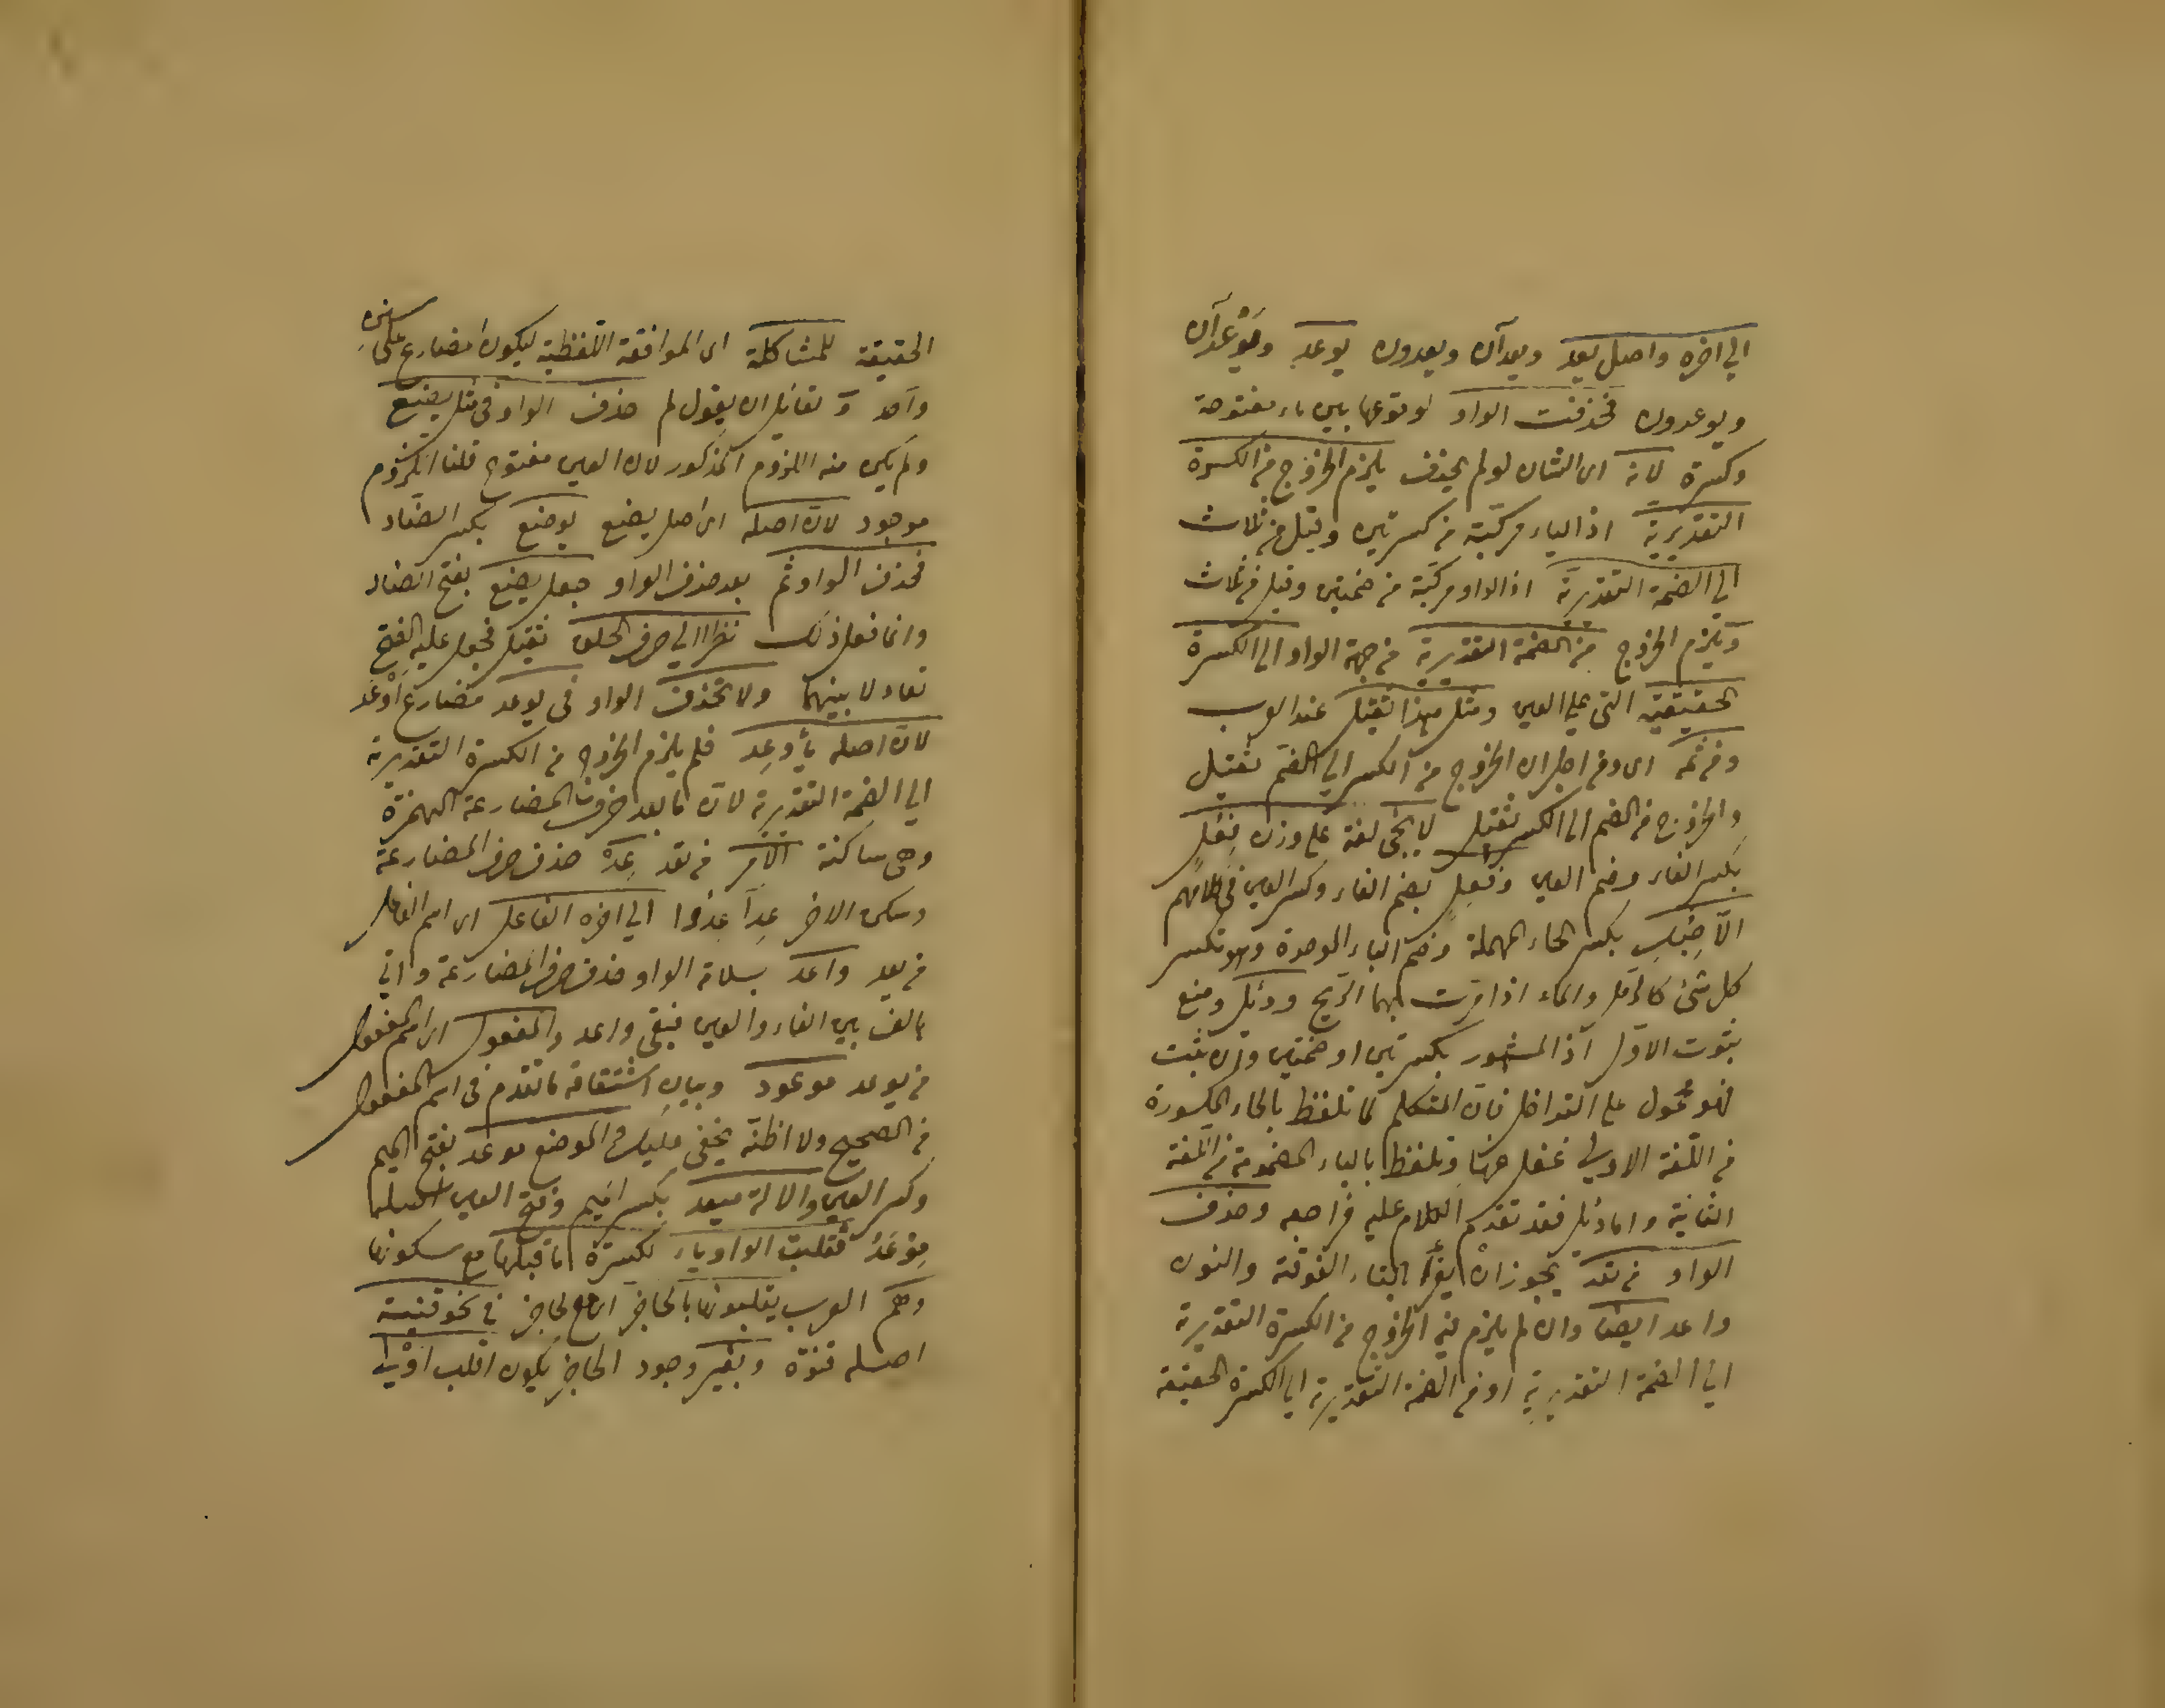 الي اخره واصل يعد ويعدان ويعدون يوعد ويوعدان
ويوعدون فحذفت الواو لوقوعها بين ياء مفتوحة
وكسرة لانه اى الشان لو لم يحذف يلزم الخروج من الكسرة
التقديرية اذ الياء مركبة من كسرتين وقيل من ثلاث
الى الضمة التقديرية اذ الواو مركبة من ضمتين وقيل من ثلاث
ويلزم الخروج من الضمة التقديرية من جهة الواو الى الكسرة
الحقيقية التى على العين ومثل هذا ثقيل عند العرب
ومن ثمه اى ومن اجل ان الخروج من الكسر الى الضم ثقيل
والخروج من الضم الى الكسر ثقيل لا يجئ لغة على وزن فِعُلٍ
بكسر الفاء وضم العين وفُعِلٍ بضم الفاء وكسر العين فى كلامهم
الّا حِبُك بكسر الحاء المهملة وضم الباء الموحدة وهو تكسر
كل شئ كالرمل والماء اذا مرت بهما الريح ودئل ومنع
ثبوت الاول اذ المشهور بكسرتين او ضمتين وان ثبت
فهو محمول على التداخل فان المتكلم لما تلفظ بالحاء المكسورة
من اللغة الاولى غفل عنها وتلفظ بالباء المضمومة من اللغة
الثانية واما دئل فقد تقدم الكلام عليه فراجعه وحذف
الواو من تعد يجوز ان يقرأ بالتاء الفوقية والنون
واعد ايضا وان لم يلزم فيه الخروج من الكسرة التقديرية
الى الضمة التقديرية او من الضمة التقديرية الى الكسرة الحقيقة
الحقيقة للمشاكلة اى الموافقة اللفظية ليكون المضارع على سنن
واحد ولقائل ان يقول لم حذف الواو فى مثل يضع
ولم يكن منه اللزوم المذكور لان العين مفتوح قلنا اللزوم
موجود لان اصله اى اصل يضع يوضع بكسر الضاد
فحذف الواو ثم بعد حذف الواو جعل يضع بفتح الضاد
وانما فعل ذلك نظرا الى حرف الحلق ثقيل فجعل عليه الفتح
تعادلا بينهما ولا تحذف الواو فى يوعد مضارع اَوْعَد
لان اصله يأوعد فلم يلزم الخروج من الكسرة التقديرية
الى الضمة التقديرية لان ما بعد حرف المضارعة الهمزة
وهى ساكنة الامر من تعد عِدْ حذف حرف المضارعة
وسكن الاخر عِدَا عِدُوا الى اخره الفاعل اى اسم الفاعل
من يعد واعد بسلامة الواو حذف حرف المضارعة واتى
بالف بين الفاء والعين فبقى واعد والمفعول اى اسم المفعول
من يوعد موعود وبيان اشتقاقه ما تقدم فى اسم المفعول
من الصحيح ولا اظنه يخفى عليك والموضع موعد بفتح الميم
وكسر العين والالة ميعد بكسر الميم وفتح العين اصلها
مِوْعَدٌ فقلبت الواو ياء لكسرة ما قبلها مع سكونها
وهم العرب يقلبونها بالحاجز اى مع الحاجز فى نحو قنية
اصله قنوة وبغير وجود الحاجز يكون اقلب اوْلى